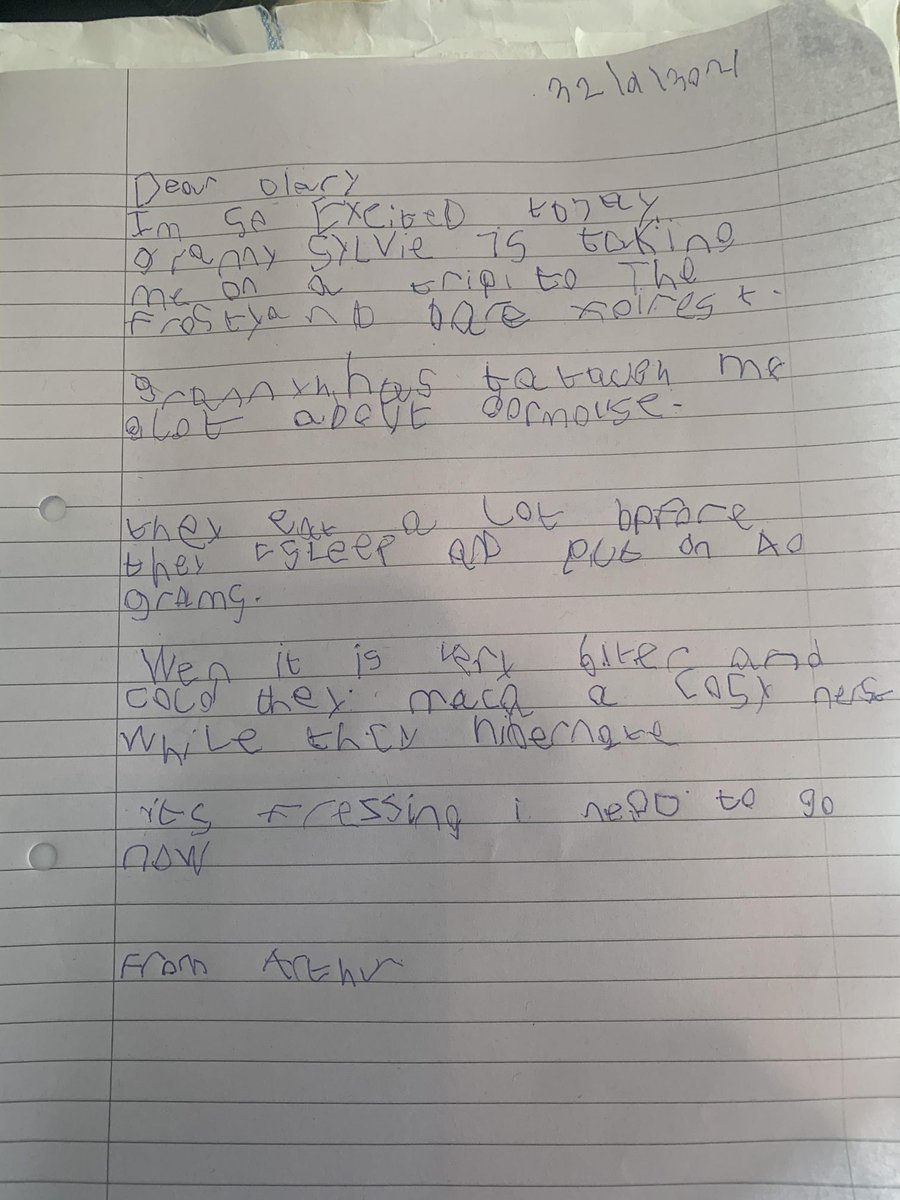 32/0/3021
Dear Diary
Im so Excited today
granny SYLVie is taking
me on a trip to The
Frosty and bare
granny has me
alot about dormouse.
they eat a lot bpfore
they sleep aD put on 40
grams.
Wen it is very biter and
cold they a cosy nest
while they hibernate
its fressing i neeD to go
now
From Arthur